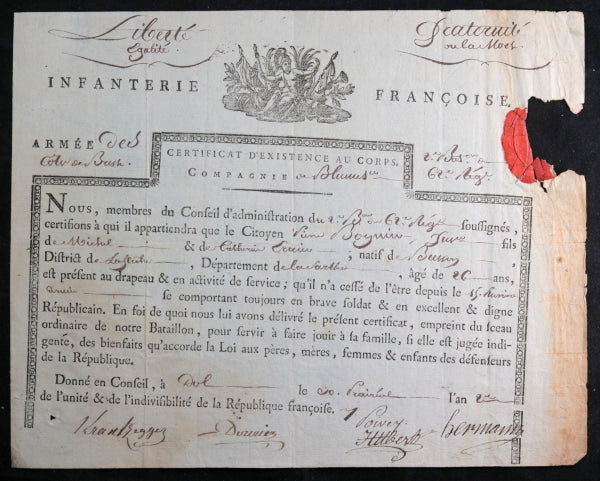 Liberté
Egalité
Fraternité
ou la Mort
INFANTERIE FRANÇOISE.
ARMÉE des
CERTIFICAT D'EXISTENCE AU CORPS.
2e Bon du
Côtes de Brest
COMPAGNIE de
62me Régt
NOUS, membres du Conseil d'administration du 2e Bon du 62me Régt soussignés,
certifions à qui il appartiendra que le Citoyen fils
de Michel & de Catherine natif de
District de Département de la Sarthe, âgé de 26 ans,
est présent au drapeau & en activité de service; qu'il n'a cessé de l'être depuis le 15
se comportant toujours en brave soldat & en excellent & digne
Républicain. En foi de quoi nous lui avons délivré le présent certificat, empreint du sceau
ordinaire de notre Bataillon, pour servir à faire jouir à sa famille, si elle est jugée indi-
gente, des bienfaits qu'accorde la Loi aux pères, mères, femmes & enfants des défenseurs
de la République.
Donné en Conseil, à Dol le 30 Prairial l'an 2me
de l'unité & de l'indivisibilité de la République françoise.
hermann